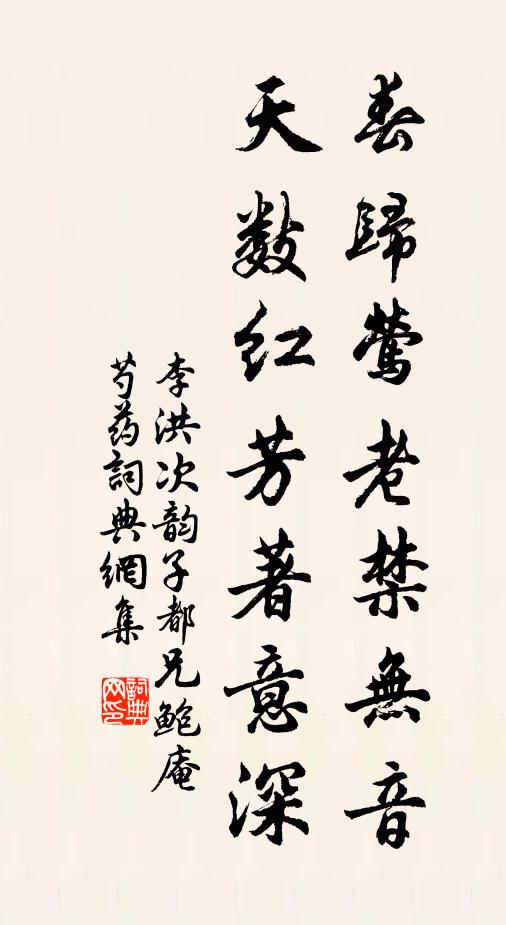 春歸鶯老禁無音
天數紅芳著意深
李洪次韵子都兄鮑庵
芍药詞典網集
詞典
网印